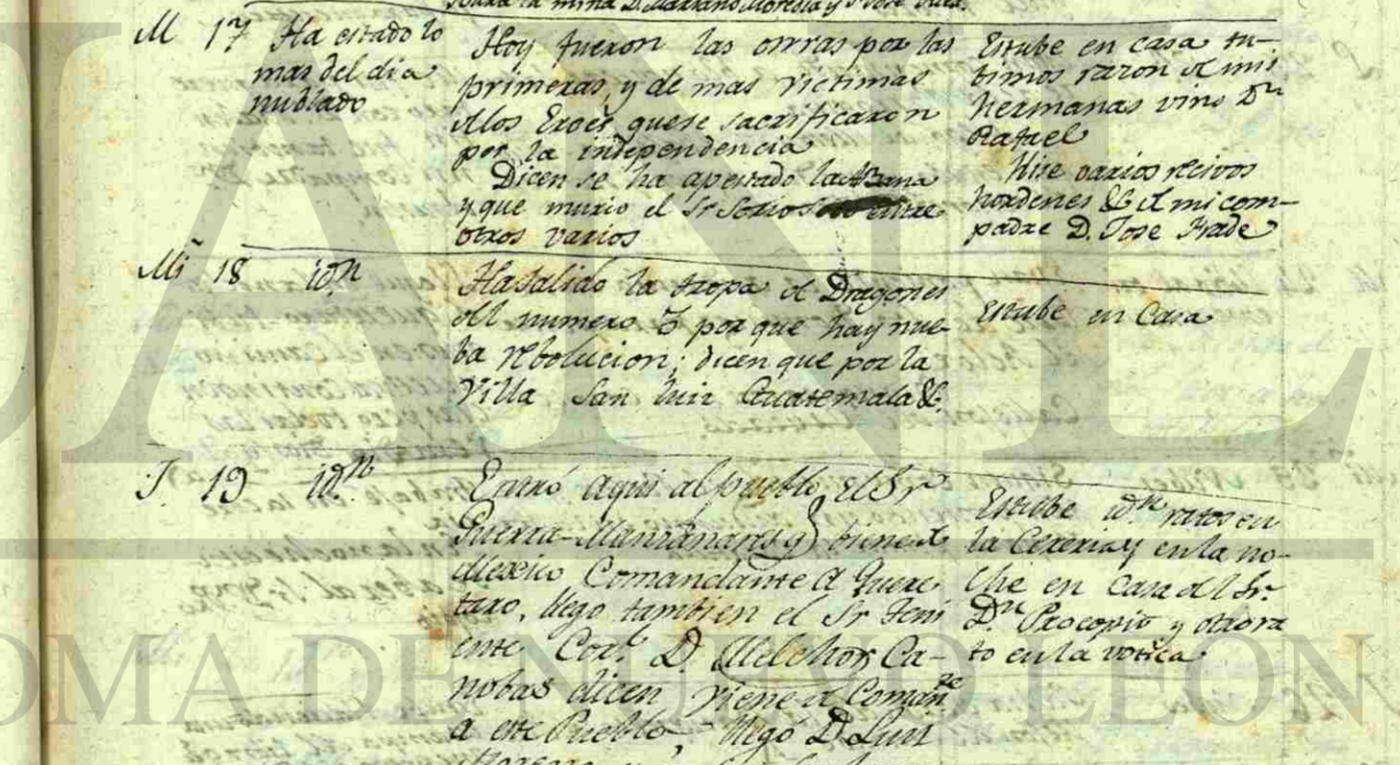 para la mina D. Mariano Morelia y D. Jose
M 17 Ha estado lo
mas del dia
nublado
Hoy fueron las onrras por las
primeras, y de mas victimas
dlos Eroes que se sacrificaron
por la independencia
Dicen se ha apestado la Abana
y que murio el Sr Sotio entre
otros varios
Estube en casa tu-
bimos razon d mis
hermanas vino Dn
Rafael
Hise varios recivos
hordenes &c d mi com-
padre D. Jose Frade
Mi 18 idn
Ha salido la tropa d Dragones
del numero 7 por que hay nue-
ba rebolucion; dicen que por la
Villa San Luis Guatemala &c.
Estube en Casa
J 19 idn
Entró aqui al pueblo, el Sr
Guerra-Manzanares q biene d
Mexico Comandante d Quere-
taro, llego tambien el Sr Teni
ente Corl. D. Melchor Ca-
nobas dicen viene d Comante
a este Pueblo, llegó D Luis
Moreno
Estube idn ratos en
la Cereria y en la no-
che en casa dl Sr.
Dn Procopio y otro ra
to en la votica
UANL
OMA DE NUEVO LEÓN